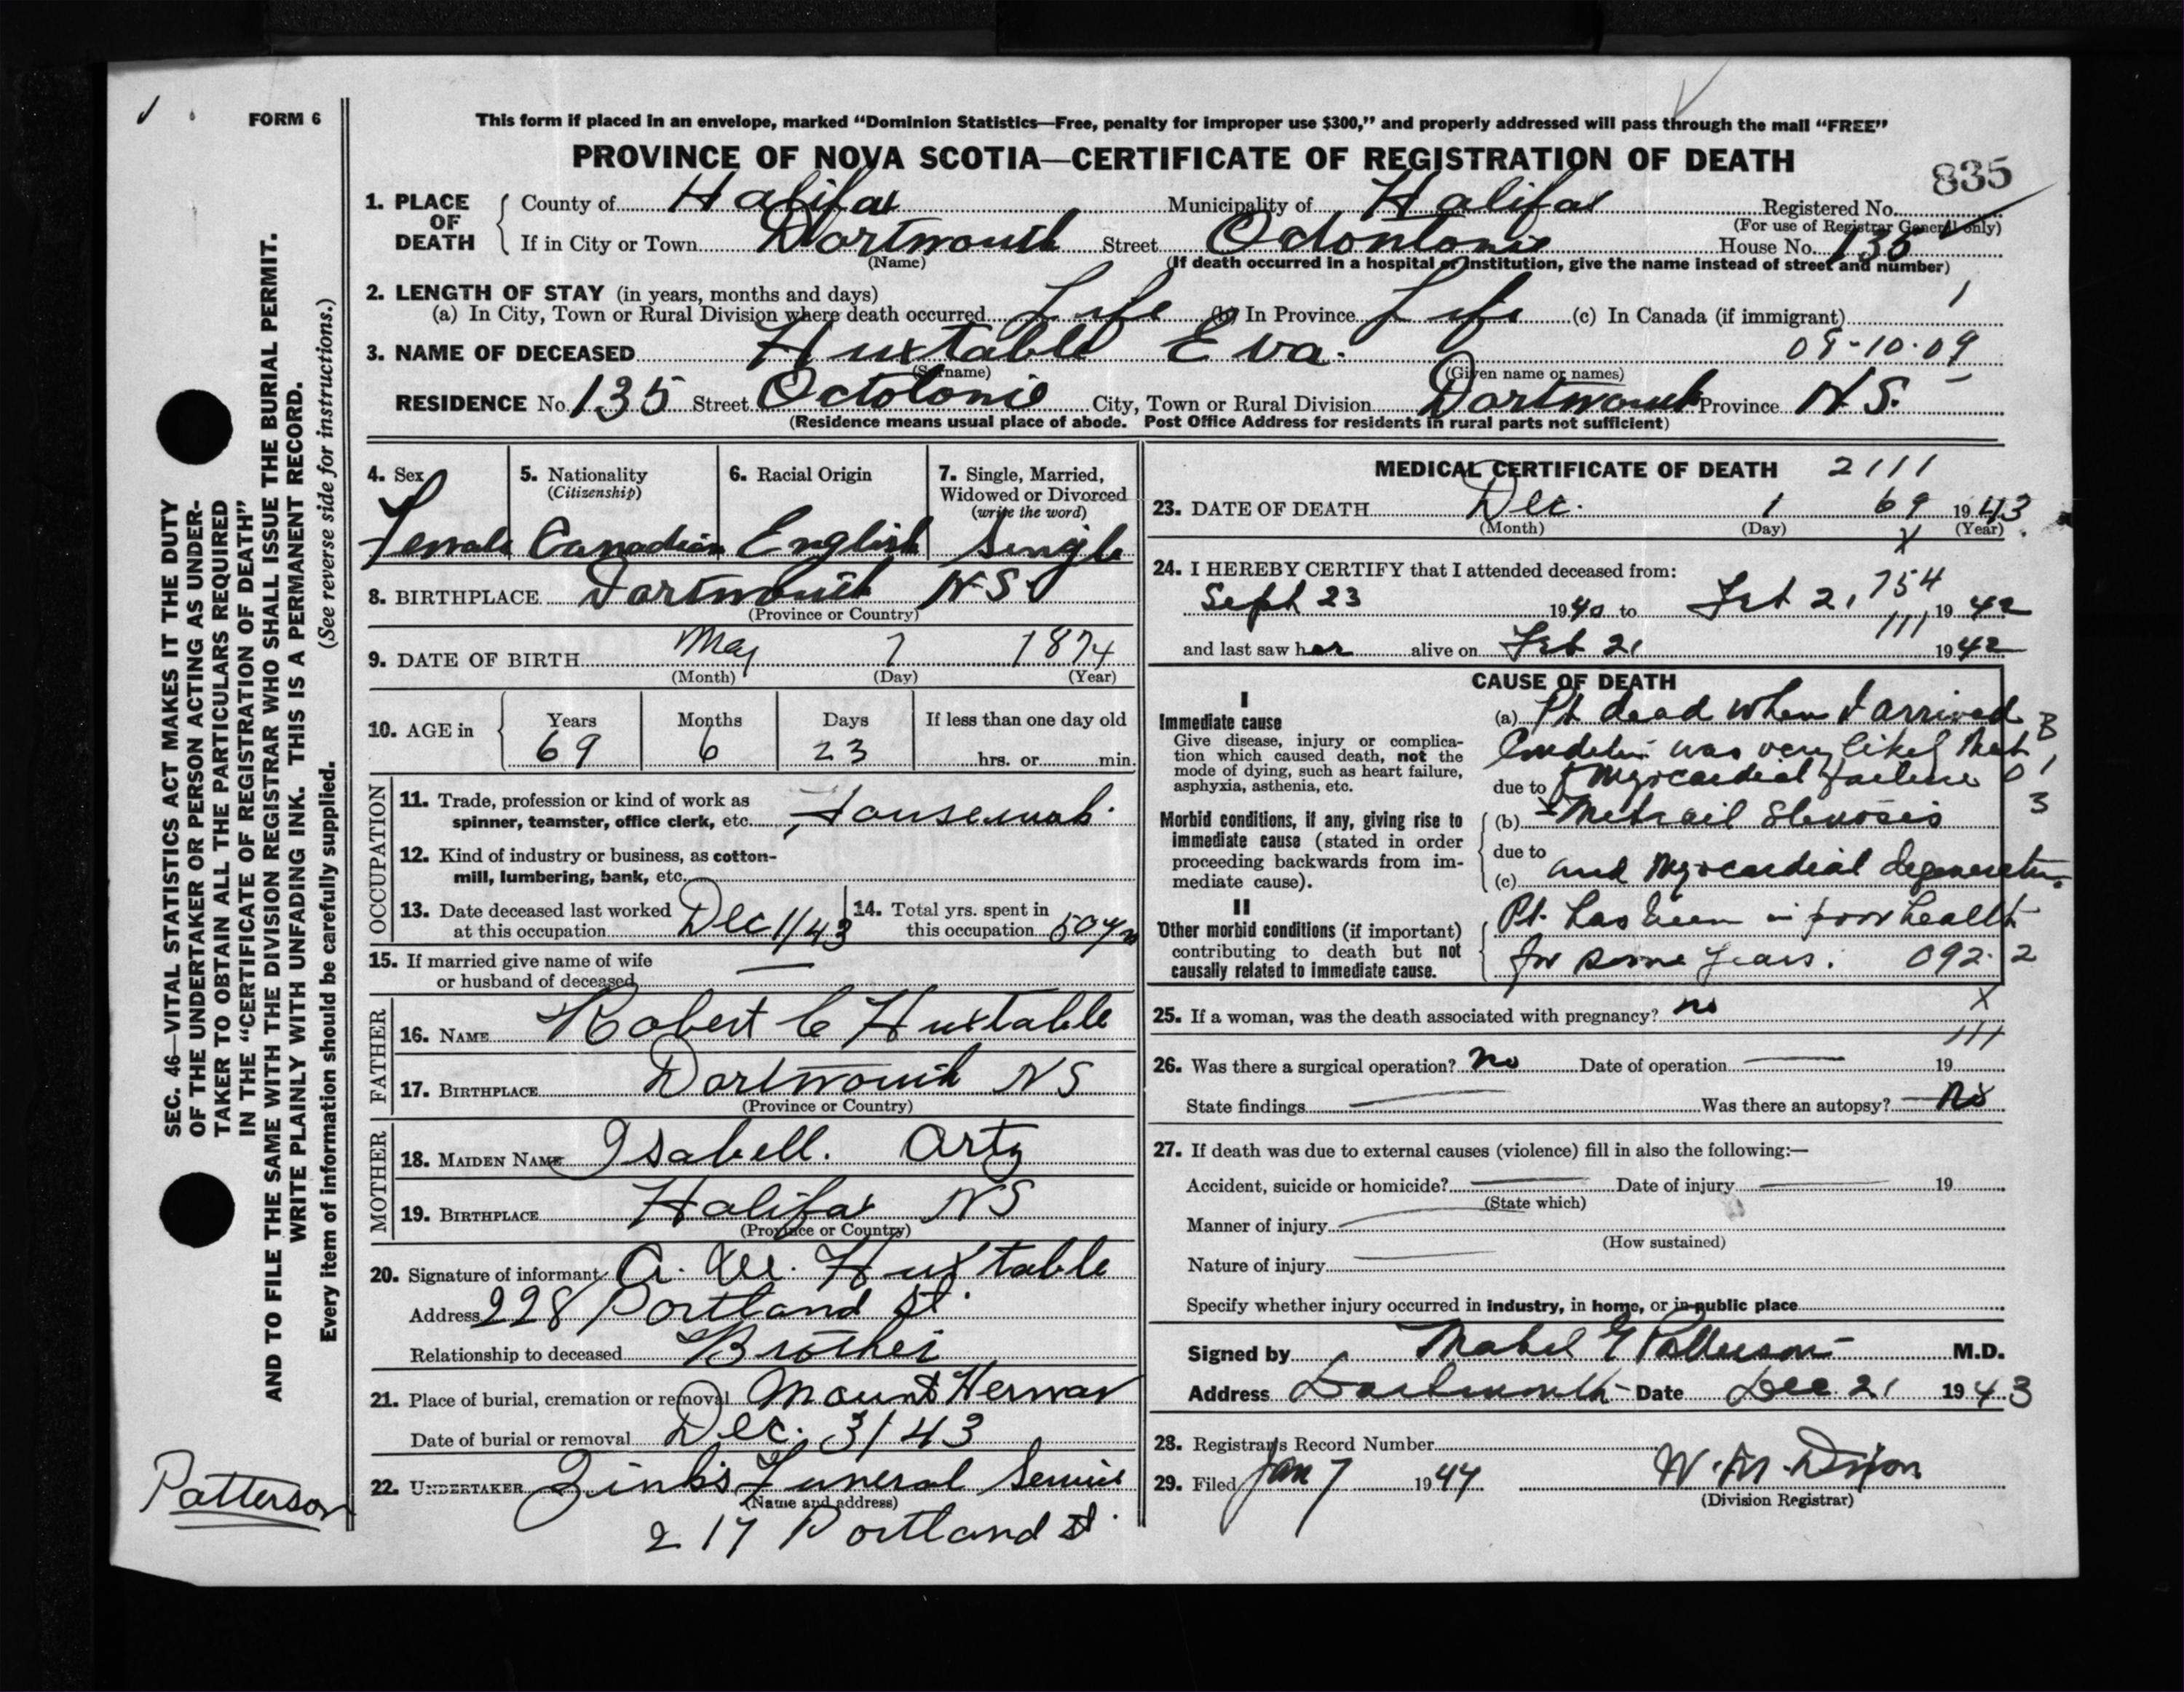 FORM 6
This form if placed in an envelope, marked “Dominion Statistics—Free, penalty for improper use $300,” and properly addressed will pass through the mail “FREE”
PROVINCE OF NOVA SCOTIA—CERTIFICATE OF REGISTRATION OF DEATH
835
1. PLACE OF DEATH County of Halifax Municipality of Halifax Registered No.
(For use of Registrar General only)
If in City or Town Dartmouth Street House No. 135
(Name) (If death occurred in a hospital or institution, give the name instead of street and number)
2. LENGTH OF STAY (in years, months and days)
(a) In City, Town or Rural Division where death occurred Life (b) In Province Life (c) In Canada (if immigrant)
3. NAME OF DECEASED Huxtable Eva. 09-10-09
(Surname) (Given name or names)
RESIDENCE No. 135 Street City, Town or Rural Division Dartmouth Province N.S.
(Residence means usual place of abode. Post Office Address for residents in rural parts not sufficient)
4. Sex 5. Nationality 6. Racial Origin 7. Single, Married,
(Citizenship) Widowed or Divorced
(write the word)
Female Canadian English Single
8. BIRTHPLACE Dartmouth N.S.
(Province or Country)
9. DATE OF BIRTH May 7 1874
(Month) (Day) (Year)
10. AGE in Years Months Days If less than one day old
69 6 23 hrs. or min.
OCCUPATION
11. Trade, profession or kind of work as
spinner, teamster, office clerk, etc. Housework
12. Kind of industry or business, as cotton-
mill, lumbering, bank, etc.
13. Date deceased last worked 14. Total yrs. spent in
at this occupation Dec 1/43 this occupation 50 yrs
15. If married give name of wife
or husband of deceased —
FATHER
16. NAME Robert C Huxtable
17. BIRTHPLACE Dartmouth NS
(Province or Country)
MOTHER
18. MAIDEN NAME Isabell. Arty
19. BIRTHPLACE Halifax NS
(Province or Country)
20. Signature of informant A. Huxtable
Address 228 Portland St.
Relationship to deceased Brother
21. Place of burial, cremation or removal Mount Herman
Date of burial or removal Dec. 3/43
22. UNDERTAKER Zink's Funeral Service
(Name and address)
217 Portland St.
MEDICAL CERTIFICATE OF DEATH 2111
23. DATE OF DEATH Dec. 1 69 1943
(Month) (Day) (Year)
X
24. I HEREBY CERTIFY that I attended deceased from:
754
Sept 23 1940 to Feb 21 1942
111
and last saw her alive on Feb 21 1942
CAUSE OF DEATH
I
Immediate cause
Give disease, injury or complica-
tion which caused death, not the
mode of dying, such as heart failure,
asphyxia, asthenia, etc.
(a) Pt dead when I arrived B
was very likely that 1
due to Myocardial failure 0
3
Morbid conditions, if any, giving rise to
immediate cause (stated in order
proceeding backwards from im-
mediate cause).
(b) Mitrail Stenosis
due to
(c) and Myocardial degeneration
II
Other morbid conditions (if important)
contributing to death but not
causally related to immediate cause.
Pt. has been in poor health
for some years. 092.2
25. If a woman, was the death associated with pregnancy? no X
111
26. Was there a surgical operation? no Date of operation — 19
State findings — Was there an autopsy? No
27. If death was due to external causes (violence) fill in also the following:—
Accident, suicide or homicide? — Date of injury — 19
(State which)
Manner of injury —
(How sustained)
Nature of injury —
Specify whether injury occurred in industry, in home, or in public place
Signed by Mabel G Patterson M.D.
Address Dartmouth Date Dec 21 1943
28. Registrar's Record Number
29. Filed Jan 7 1944 W. M. Dixon
(Division Registrar)
SEC. 46—VITAL STATISTICS ACT MAKES IT THE DUTY
OF THE UNDERTAKER OR PERSON ACTING AS UNDER-
TAKER TO OBTAIN ALL THE PARTICULARS REQUIRED
IN THE “CERTIFICATE OF REGISTRATION OF DEATH”
AND TO FILE THE SAME WITH THE DIVISION REGISTRAR WHO SHALL ISSUE THE BURIAL PERMIT.
WRITE PLAINLY WITH UNFADING INK. THIS IS A PERMANENT RECORD.
Every item of information should be carefully supplied. (See reverse side for instructions.)
Patterson